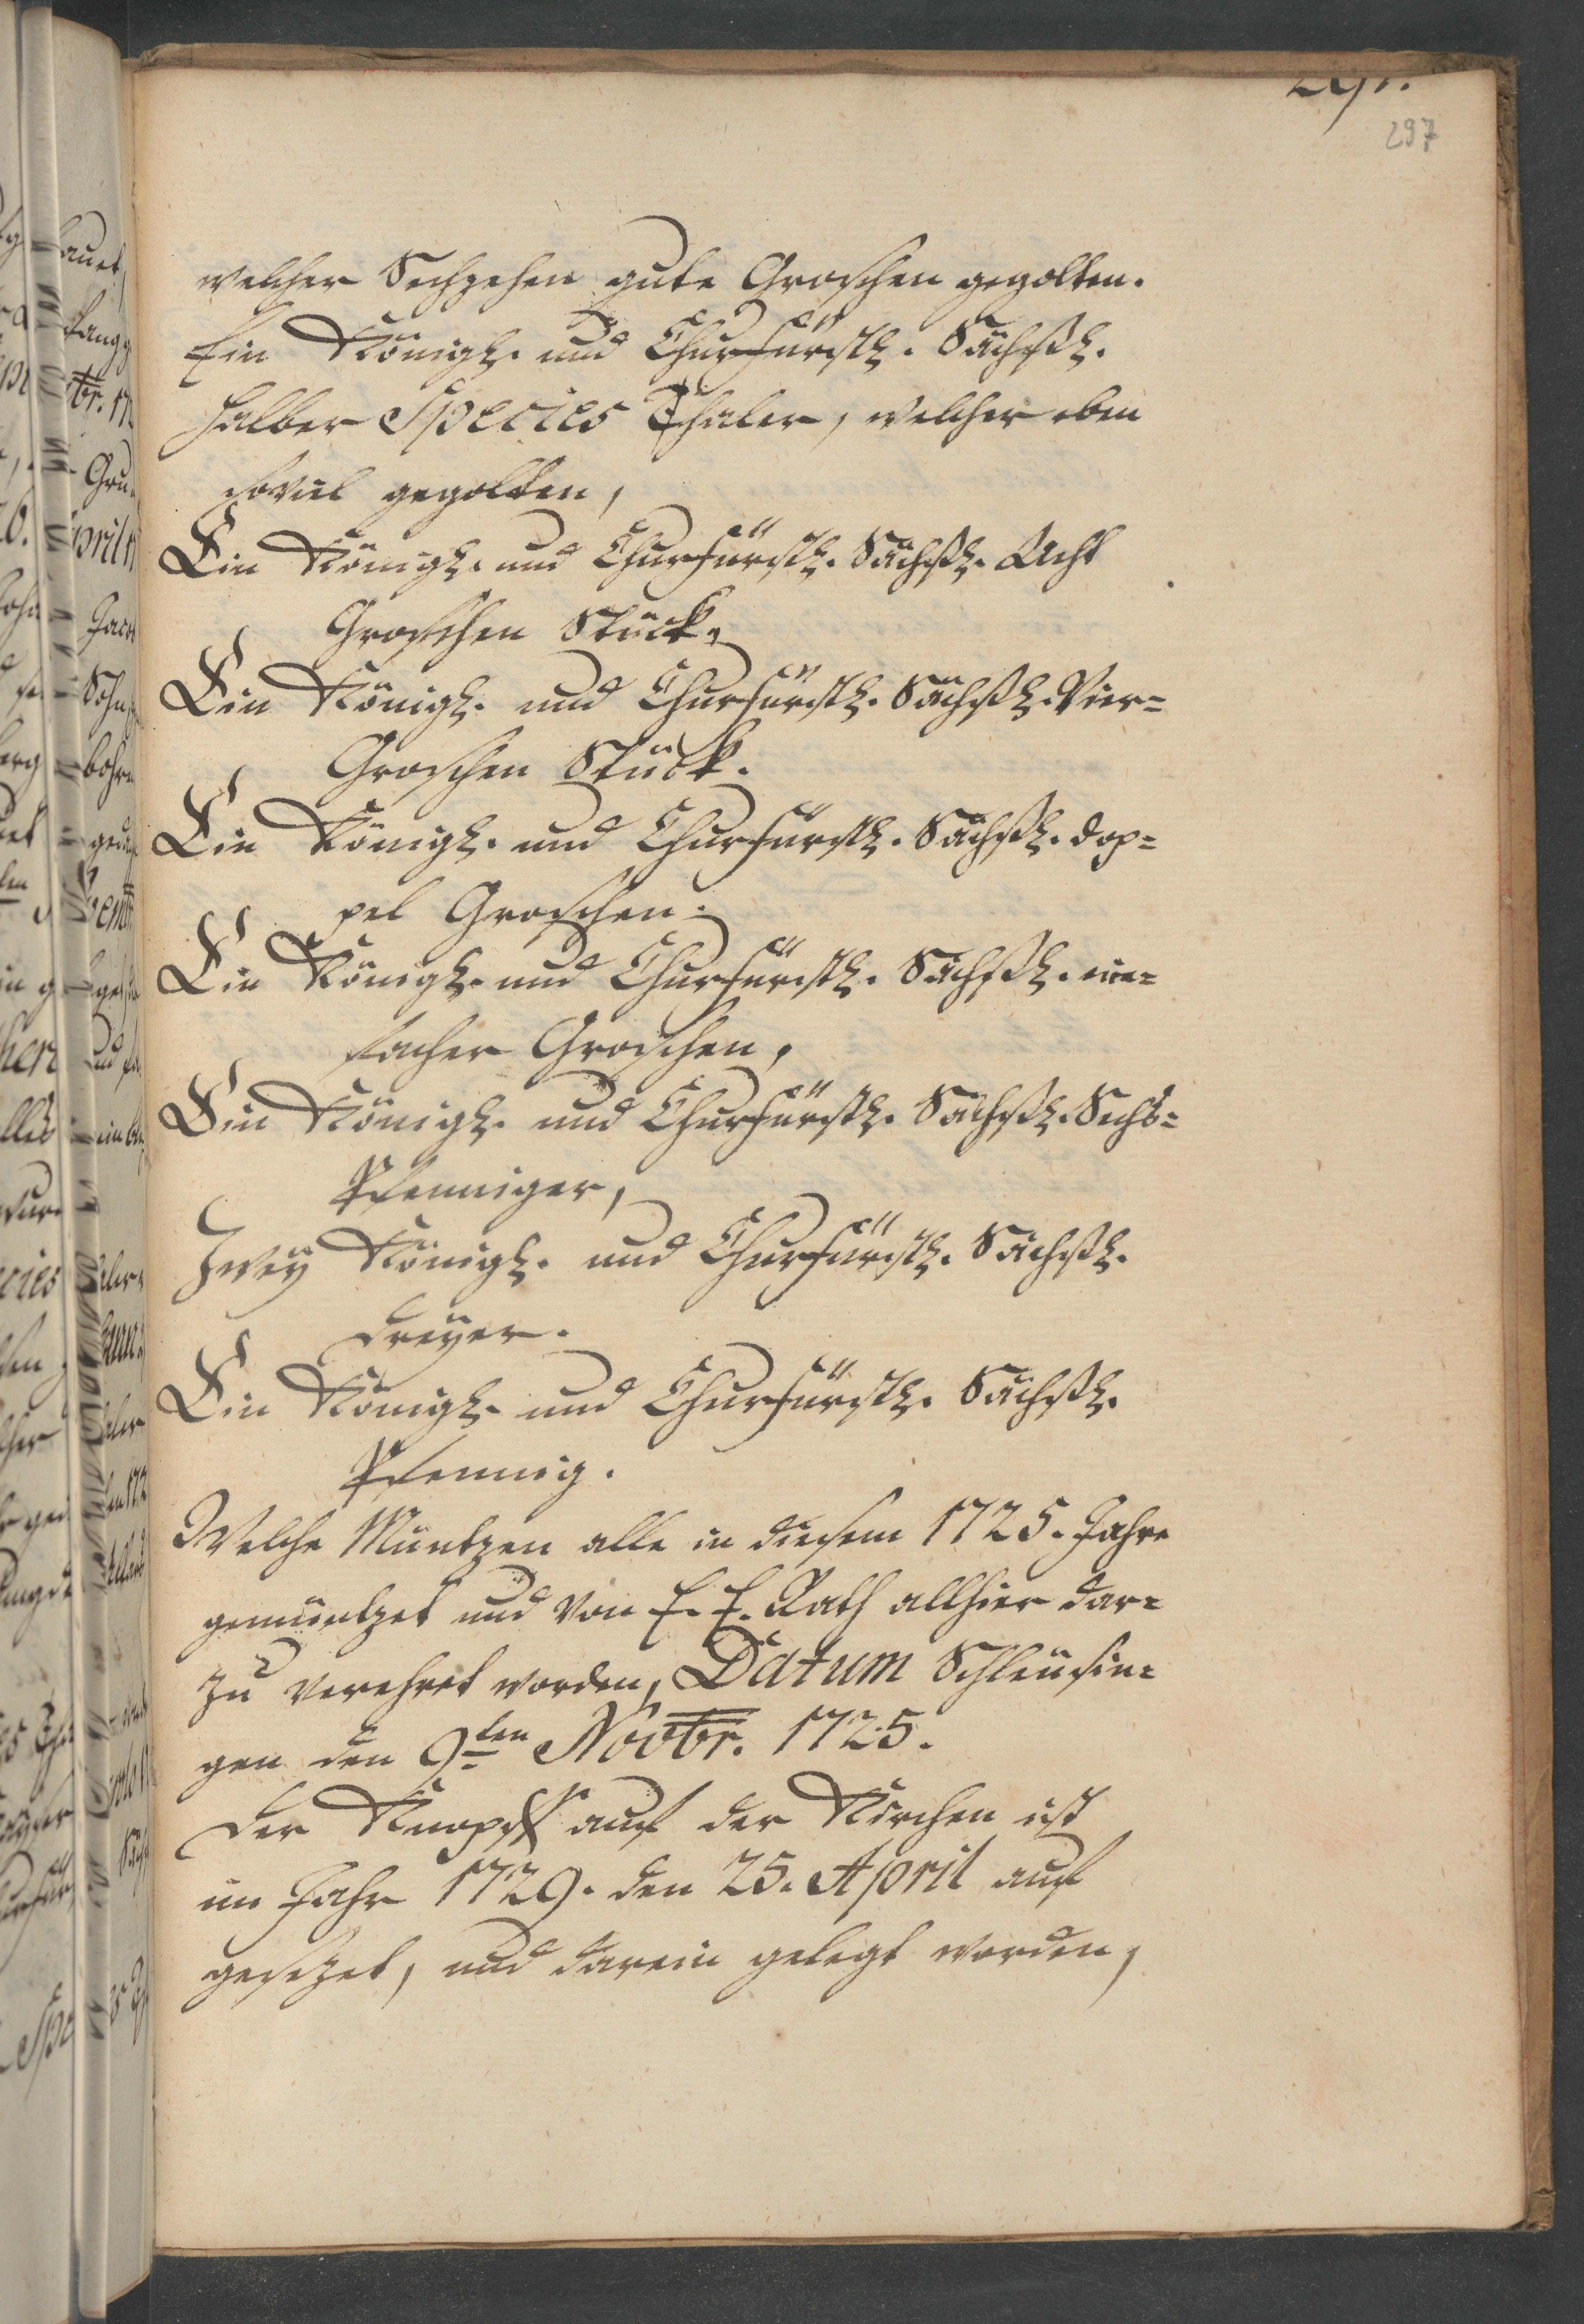 297
welcher Sechzehen gute Groschen gegolten.
Ein Königl. und Churfürstl. Sächßl.
halber Species Thaler, welcher eben
soviel gegolten,
Ein Königl. und Churfürstl. Sächßl. Acht
Groschen Stück,
Ein Königl. und Churfürstl. Sächßl. Vier-
Groschen Stück.
Ein Königl. und Churfürstl. Sächßl. dop-
pel Groschen.
Ein Königl. und Churfürstl. Sächßl. ein-
facher Groschen,
Ein Königl. und Churfürstl. Sächßl. Sechs-
Pfenniger,
Zweÿ Königl. und Churfürstl. Sächßl.
Dreÿer.
Ein Königl. und Churfürstl. Sächßl.
Pfennig.
Welche Müntzen alle in diesem 1725. Jahre
gemüntzet und von E. E. Rath allhier dar-
zu verehret worden, Datum Schleusin-
gen den 9ten Novbr. 1725.
Der Knopff auf der Kirchen ist
im Jahr 1729. den 25. April auf
gesezet, und darein gelegt worden,